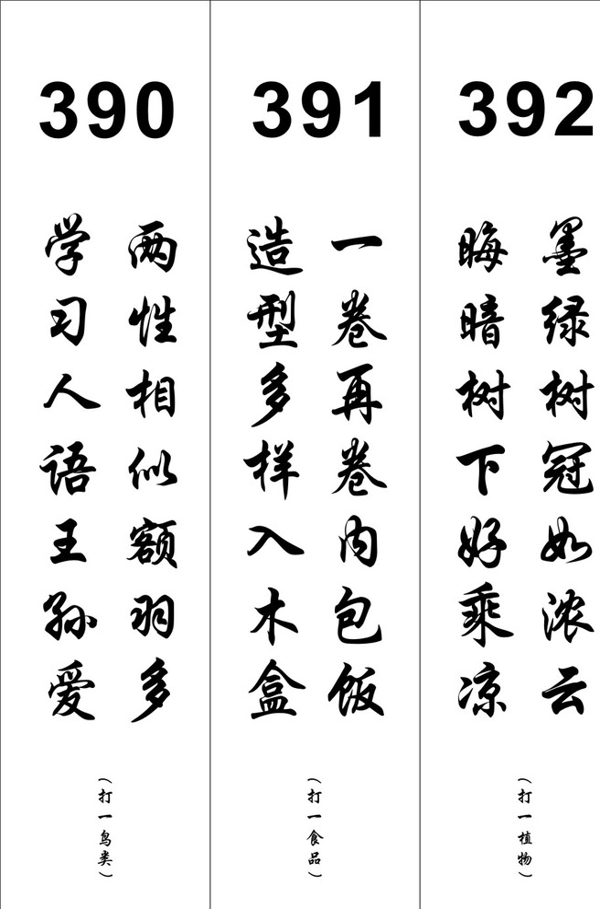 390
两性相似额羽多
学习人语王孙爱
(打一鸟类)
391
一卷再卷内包饭
造型多样入木盒
(打一食品)
392
墨绿树冠如浓云
晦暗树下好乘凉
(打一植物)